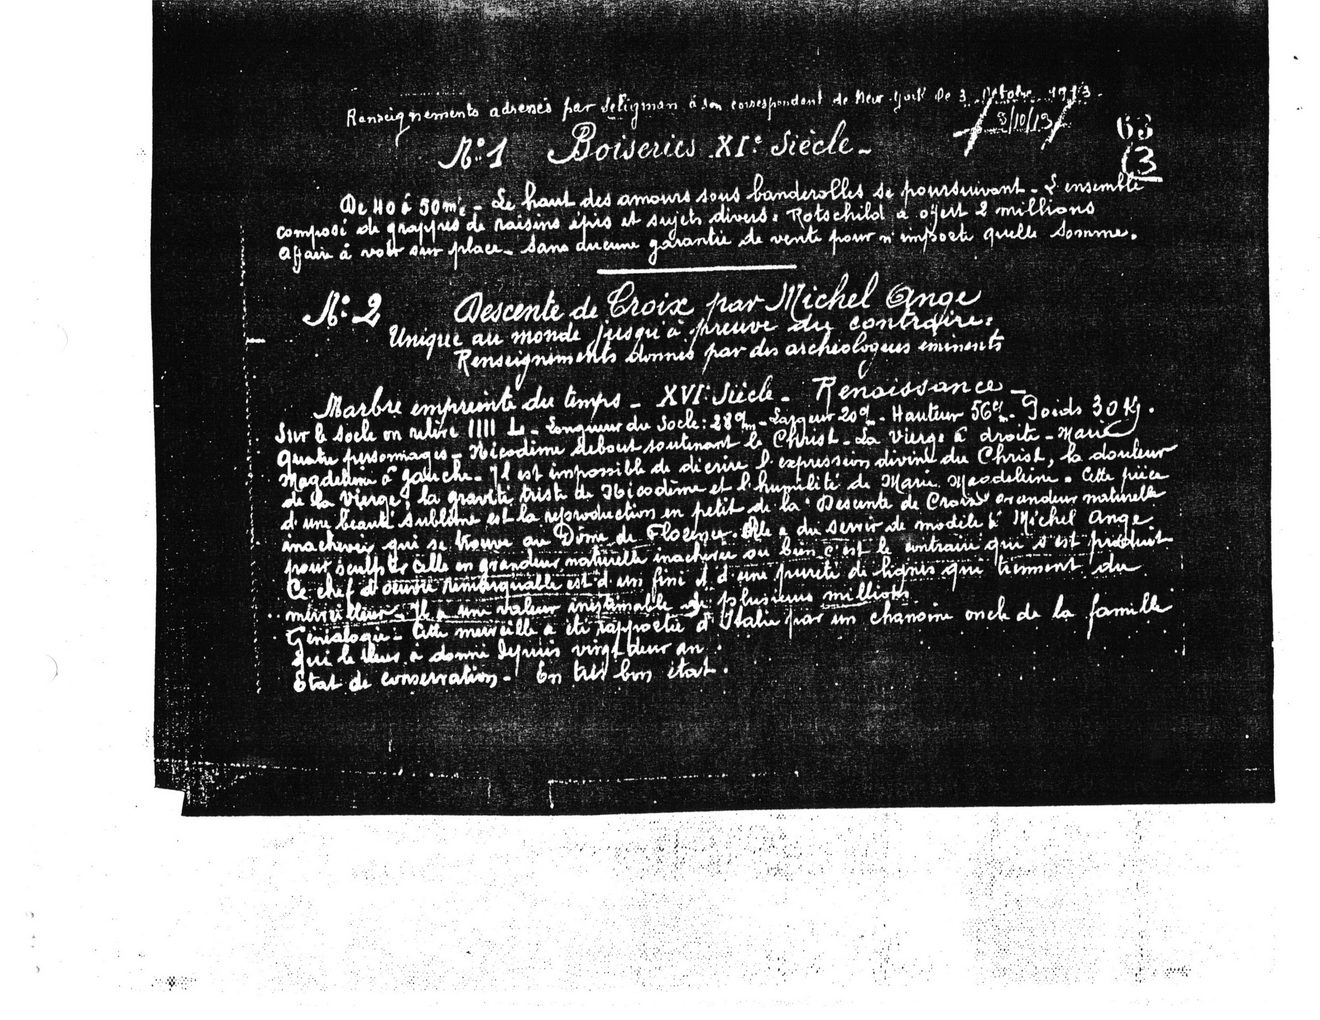 Renseignements adressés par Seligman à son correspondant de New York le 3 Octobre 1913.
3/10/13
63
(3
N°1 Boiseries XIe Siècle -
De 40 à 50 m/c - Le haut des amours sous banderolles se poursuivant - L'ensemble
composé de grappes de raisins épis et sujets divers. Rotschild a offert 2 millions
Affaire à voir sur place - Sans aucune garantie de vente pour n'importe quelle somme.
N°2 Descente de Croix par Michel Ange
Unique au monde jusqu'à preuve du contraire.
Renseignements donnés par des archéologues éminents
Marbre empreinte du temps - XVIe Siècle - Renaissance -
Sur le socle en relève 1111 L. - Longueur du Socle: 28 c/m - Largeur 20 c/ - Hauteur 56 c/ - Poids 30 Kg.
Quatre personnages - Nicodème debout soutenant le Christ - La Vierge à droite - Marie
Magdeleine à gauche - Il est impossible de décrire l'expression divine du Christ, la douleur
de la Vierge, la gravité triste de Nicodème et l'humilité de Marie Magdeleine. Cette pièce
d'une beauté sublime est la reproduction en petit de la "Descente de Croix" grandeur naturelle
inachevée qui se trouve au Dôme de Florence. Elle a du servir de modèle à Michel Ange
pour sculpter celle en grandeur naturelle inachevée ou bien c'est le contraire qui s'est produit
Ce chef d'oeuvre remarquable est d'un fini et d'une pureté de lignes qui tiennent du
merveilleux. Il a une valeur inestimable de plusieurs millions
Généalogie - Cette merveille a été rapportée d'Italie par un chanoine oncle de la famille
qui le leur a donné depuis vingt deux an.
Etat de conservation - En très bon état.